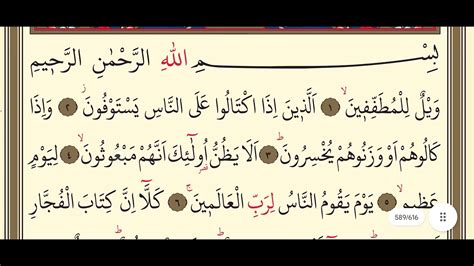 بِسْمِ اللهِ الرَّحْمٰنِ الرَّحٖيمِ
وَيْلٌ لِلْمُطَفِّفٖينَۙ ﴿١﴾ اَلَّذٖينَ اِذَا اكْتَالُوا عَلَى النَّاسِ يَسْتَوْفُونَۘ ﴿٢﴾ وَاِذَا
كَالُوهُمْ اَوْ وَزَنُوهُمْ يُخْسِرُونَۜ ﴿٣﴾ اَلَا يَظُنُّ اُو۬لٰٓئِكَ اَنَّهُمْ مَبْعُوثُونَۙ ﴿٤﴾ لِيَوْمٍ
عَظٖيمٍۙ ﴿٥﴾ يَوْمَ يَقُومُ النَّاسُ لِرَبِّ الْعَالَمٖينَۜ ﴿٦﴾ كَلَّٓا اِنَّ كِتَابَ الْفُجَّارِ
589/616